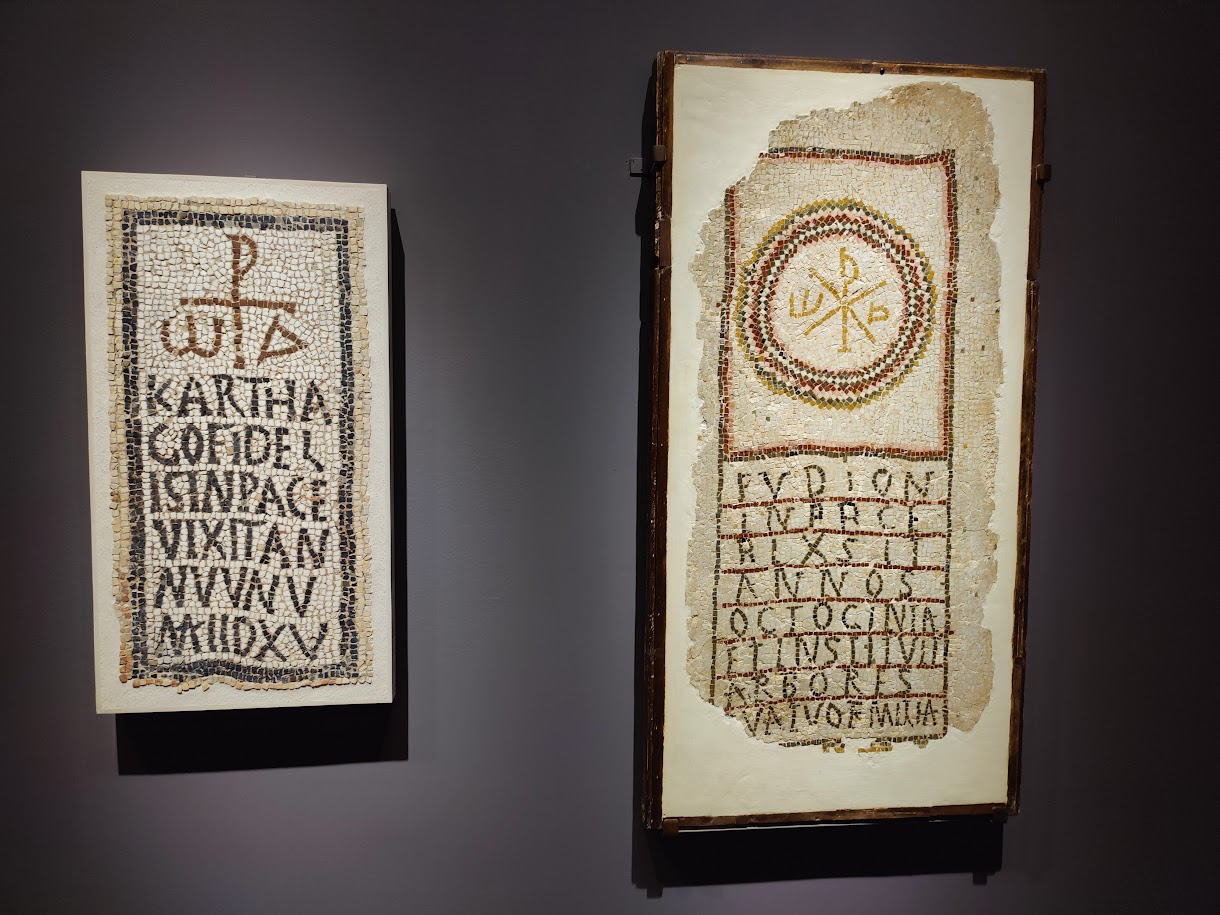 ω A
KARTHA
GOFIDEL
ISINPACE
VIXITAN
NVVNV
MIIDXV
ω A
FVDION
INPACE
BIXSIT
ANNOS
OCTOGINTA
ETINSTITVIT
ARBORES
VATVORMILIA